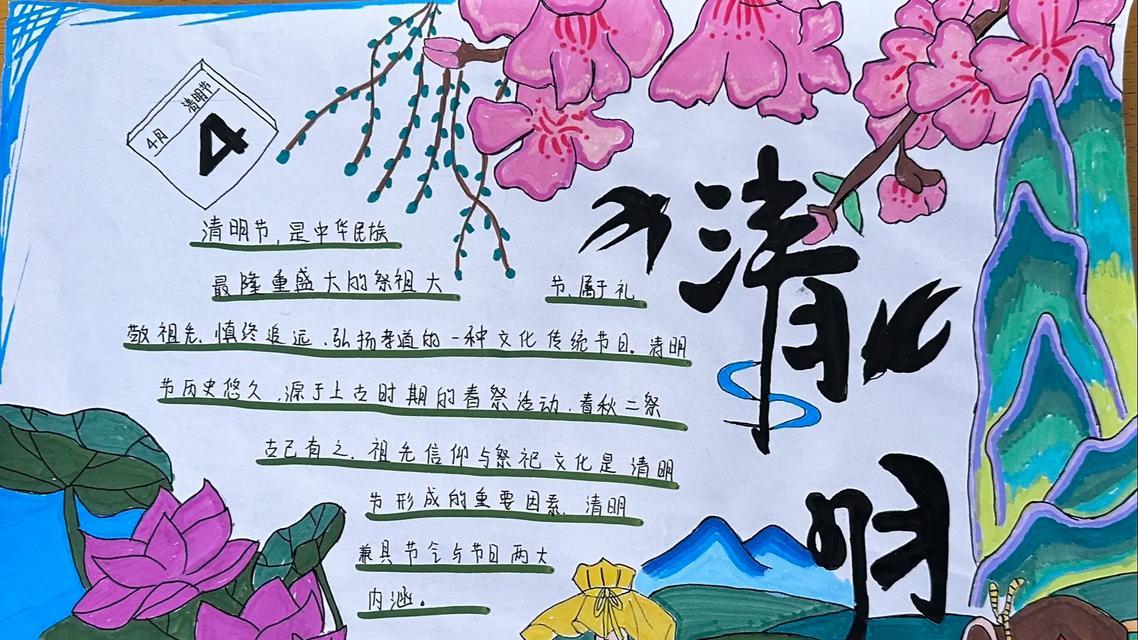 4月 清明节
4
清明
清明节,是中华民族
最隆重盛大的祭祖大 节、属于礼
敬祖先、慎终追远、弘扬孝道的一种文化传统节日。清明
节历史悠久,源于上古时期的春祭活动,春秋二祭
古已有之。祖先信仰与祭祀文化是清明
节形成的重要因素。清明
兼具节气与节日两大
内涵。